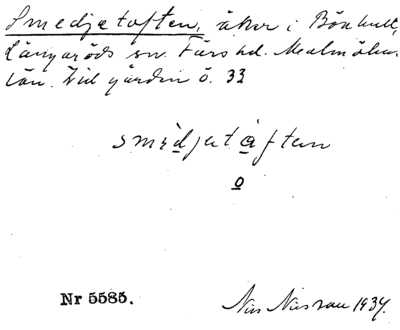 Smedjetoften, åker i Bönhult,
Långaröds sn. Färs hd. Malmöhus
län. Vid gården ö. 33
smèdjetåften
o
Nr 5585.
Nils Nilsson 1934.